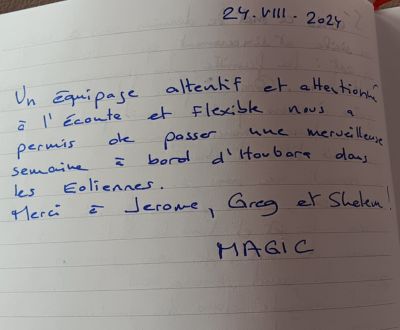 24.VIII.2024
Un équipage attentif et attentionné
à l'écoute et flexible nous a
permis de passer une merveilleuse
semaine à bord d'Houbara dans
les Eoliennes.
Merci à Jerome, Greg et Shelem!
MAGIC